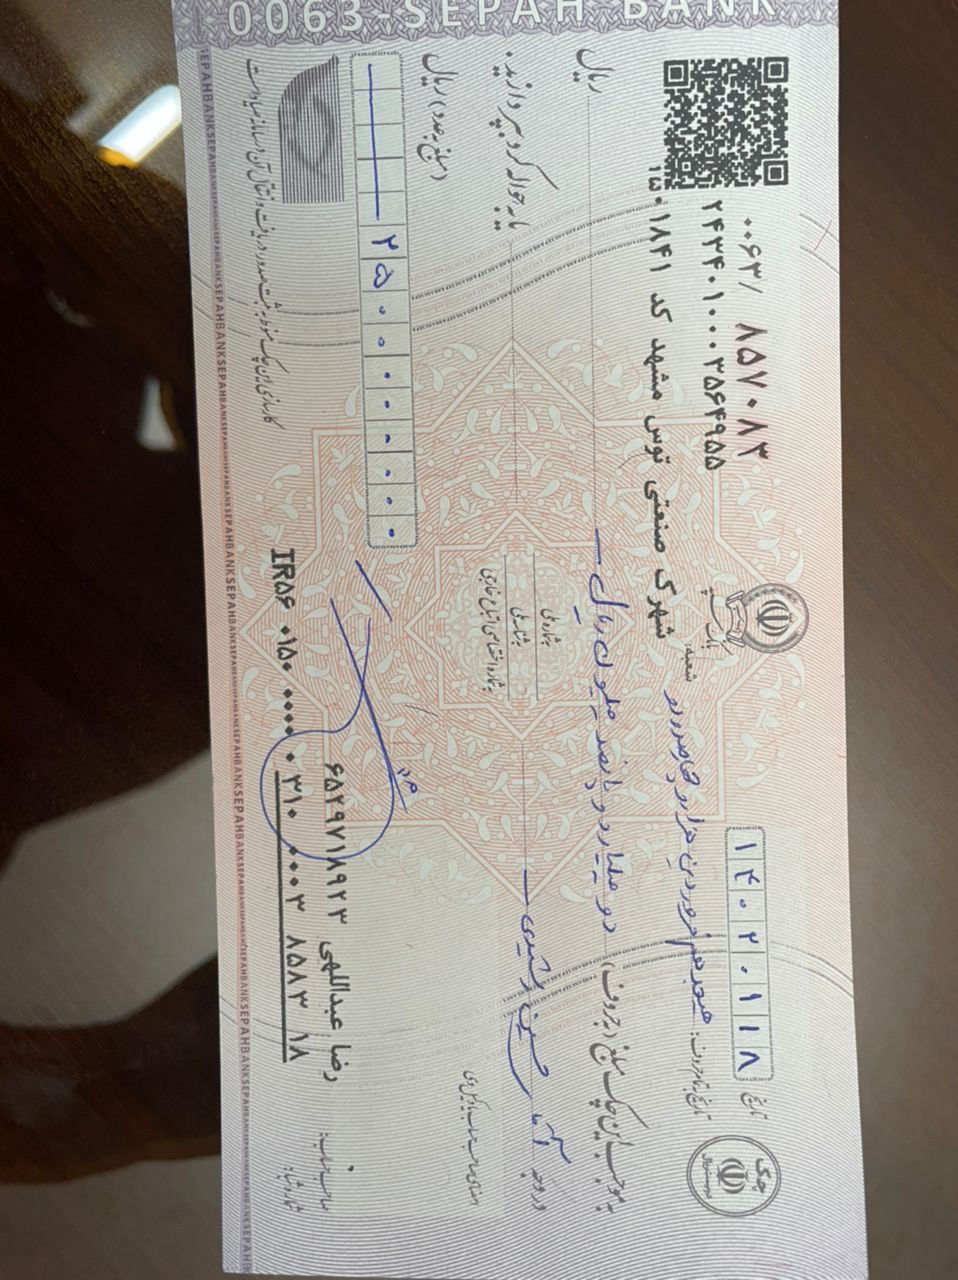 چک
۱۴۰۲۰۱۱۸ تاریخ
۰۰۶۳/ ۸۵۷۰۸۳
۲۴۳۴۰۱۰۰۰۳۵۶۴۹۵۵
بانک سپه
تاریخ به تمام حروف: هیجدهم فروردین هزار و چهارصد و دو
شعبه: شهرک صنعتی توس مشهد کد ۱۵۰۱۸۴۱
به موجب این چک مبلغ (به حروف) دو میلیارد و پانصد میلیون ریال ریال
در وجه آقای حسین رشیدی
به شماره ملی
به شناسه ملی
به شماره اختصاصی اتباع خارجی
یا به حواله کرد بپردازید.
امضای صاحب حساب یا وکیل وی
(مبلغ به عدد) ریال
۲۵۰۰۰۰۰۰۰۰
صاحب حساب: رضا عبداللهی ۶۵۲۹۷۱۸۹۲۳
شماره شبا: IR۵۶ ۰۱۵۰ ۰۰۰۰ ۰۳۱۰ ۰۰۰۳ ۸۵۸۳ ۱۸
کارسازی این چک منوط به ثبت صدور، دریافت و انتقال آن در سامانه صیاد است
0063-SEPAH BANK
SEPAHBANKSEPAHBANKSEPAHBANKSEPAHBANK